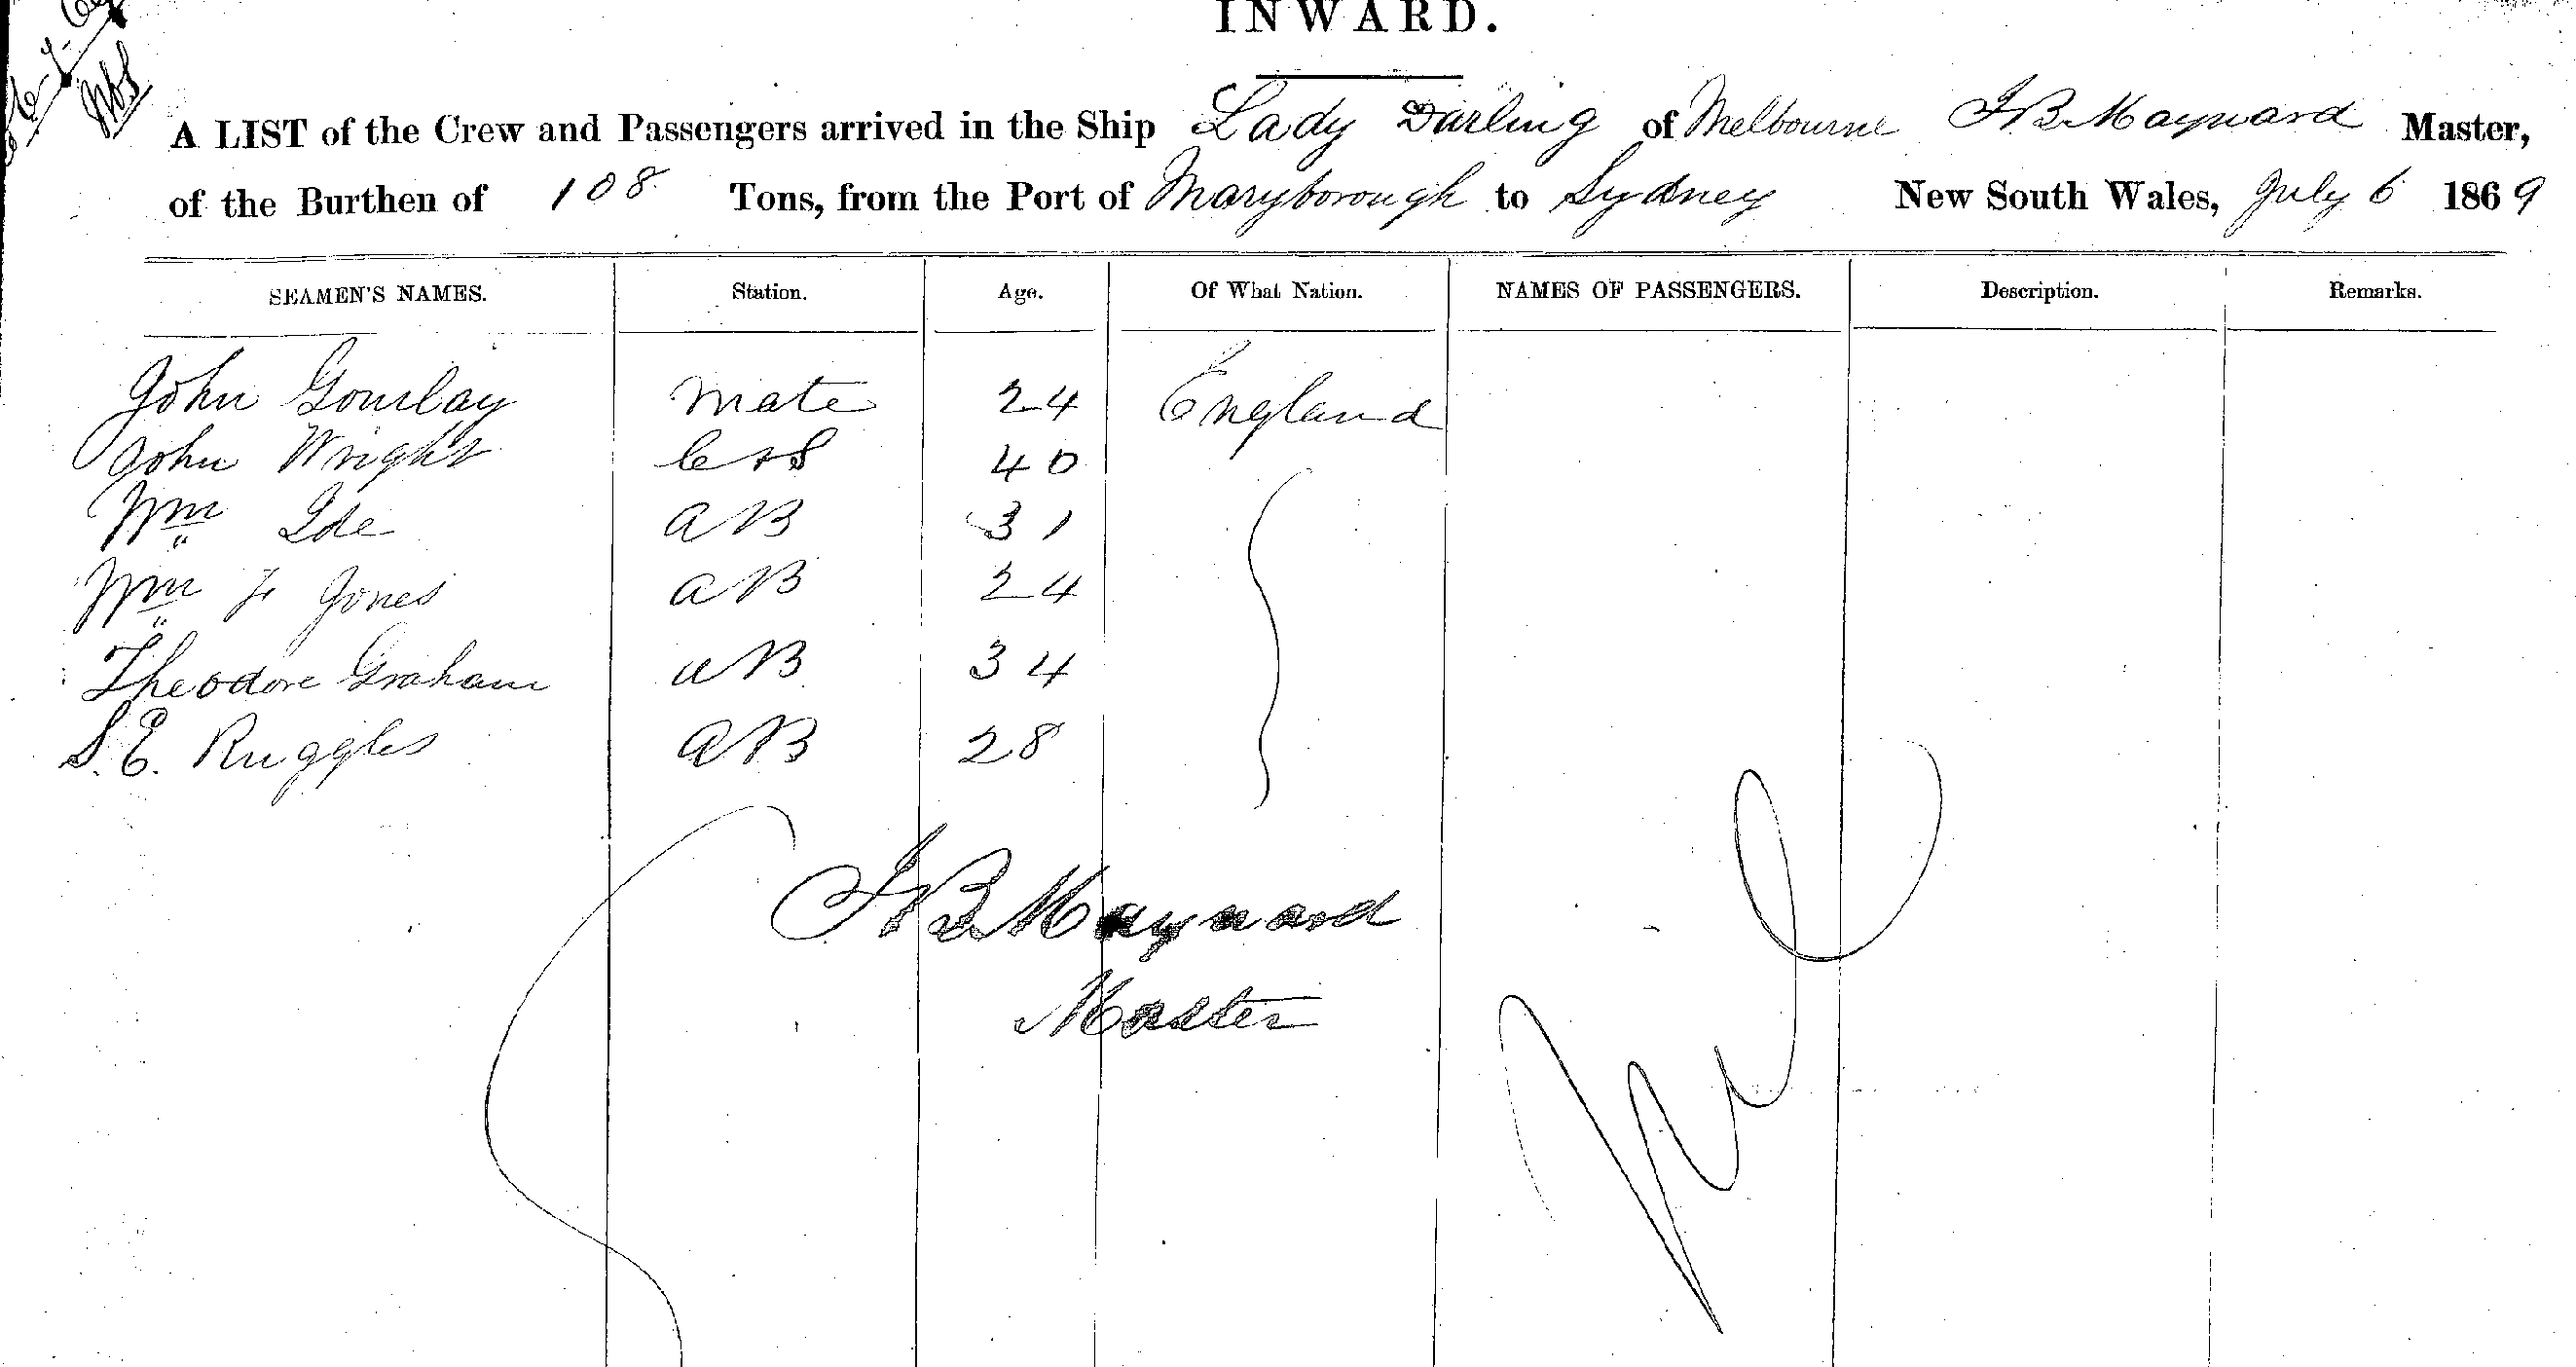 INWARD.
A LIST of the Crew and Passengers arrived in the Ship Lady Darling of Melbourne J B Maynard Master,
of the Burthen of 108 Tons, from the Port of Maryborough to Sydney New South Wales, July 6 1869
SEAMEN'S NAMES. Station. Age. Of What Nation. NAMES OF PASSENGERS. Description. Remarks.
John Gourlay mate 24 England
John Wright 40
Wm Ide AB 31
Wm Jones AB 24
Theodore Graham AB 34
S. E. Ruggles AB 28
J B Maynard
Master
nil